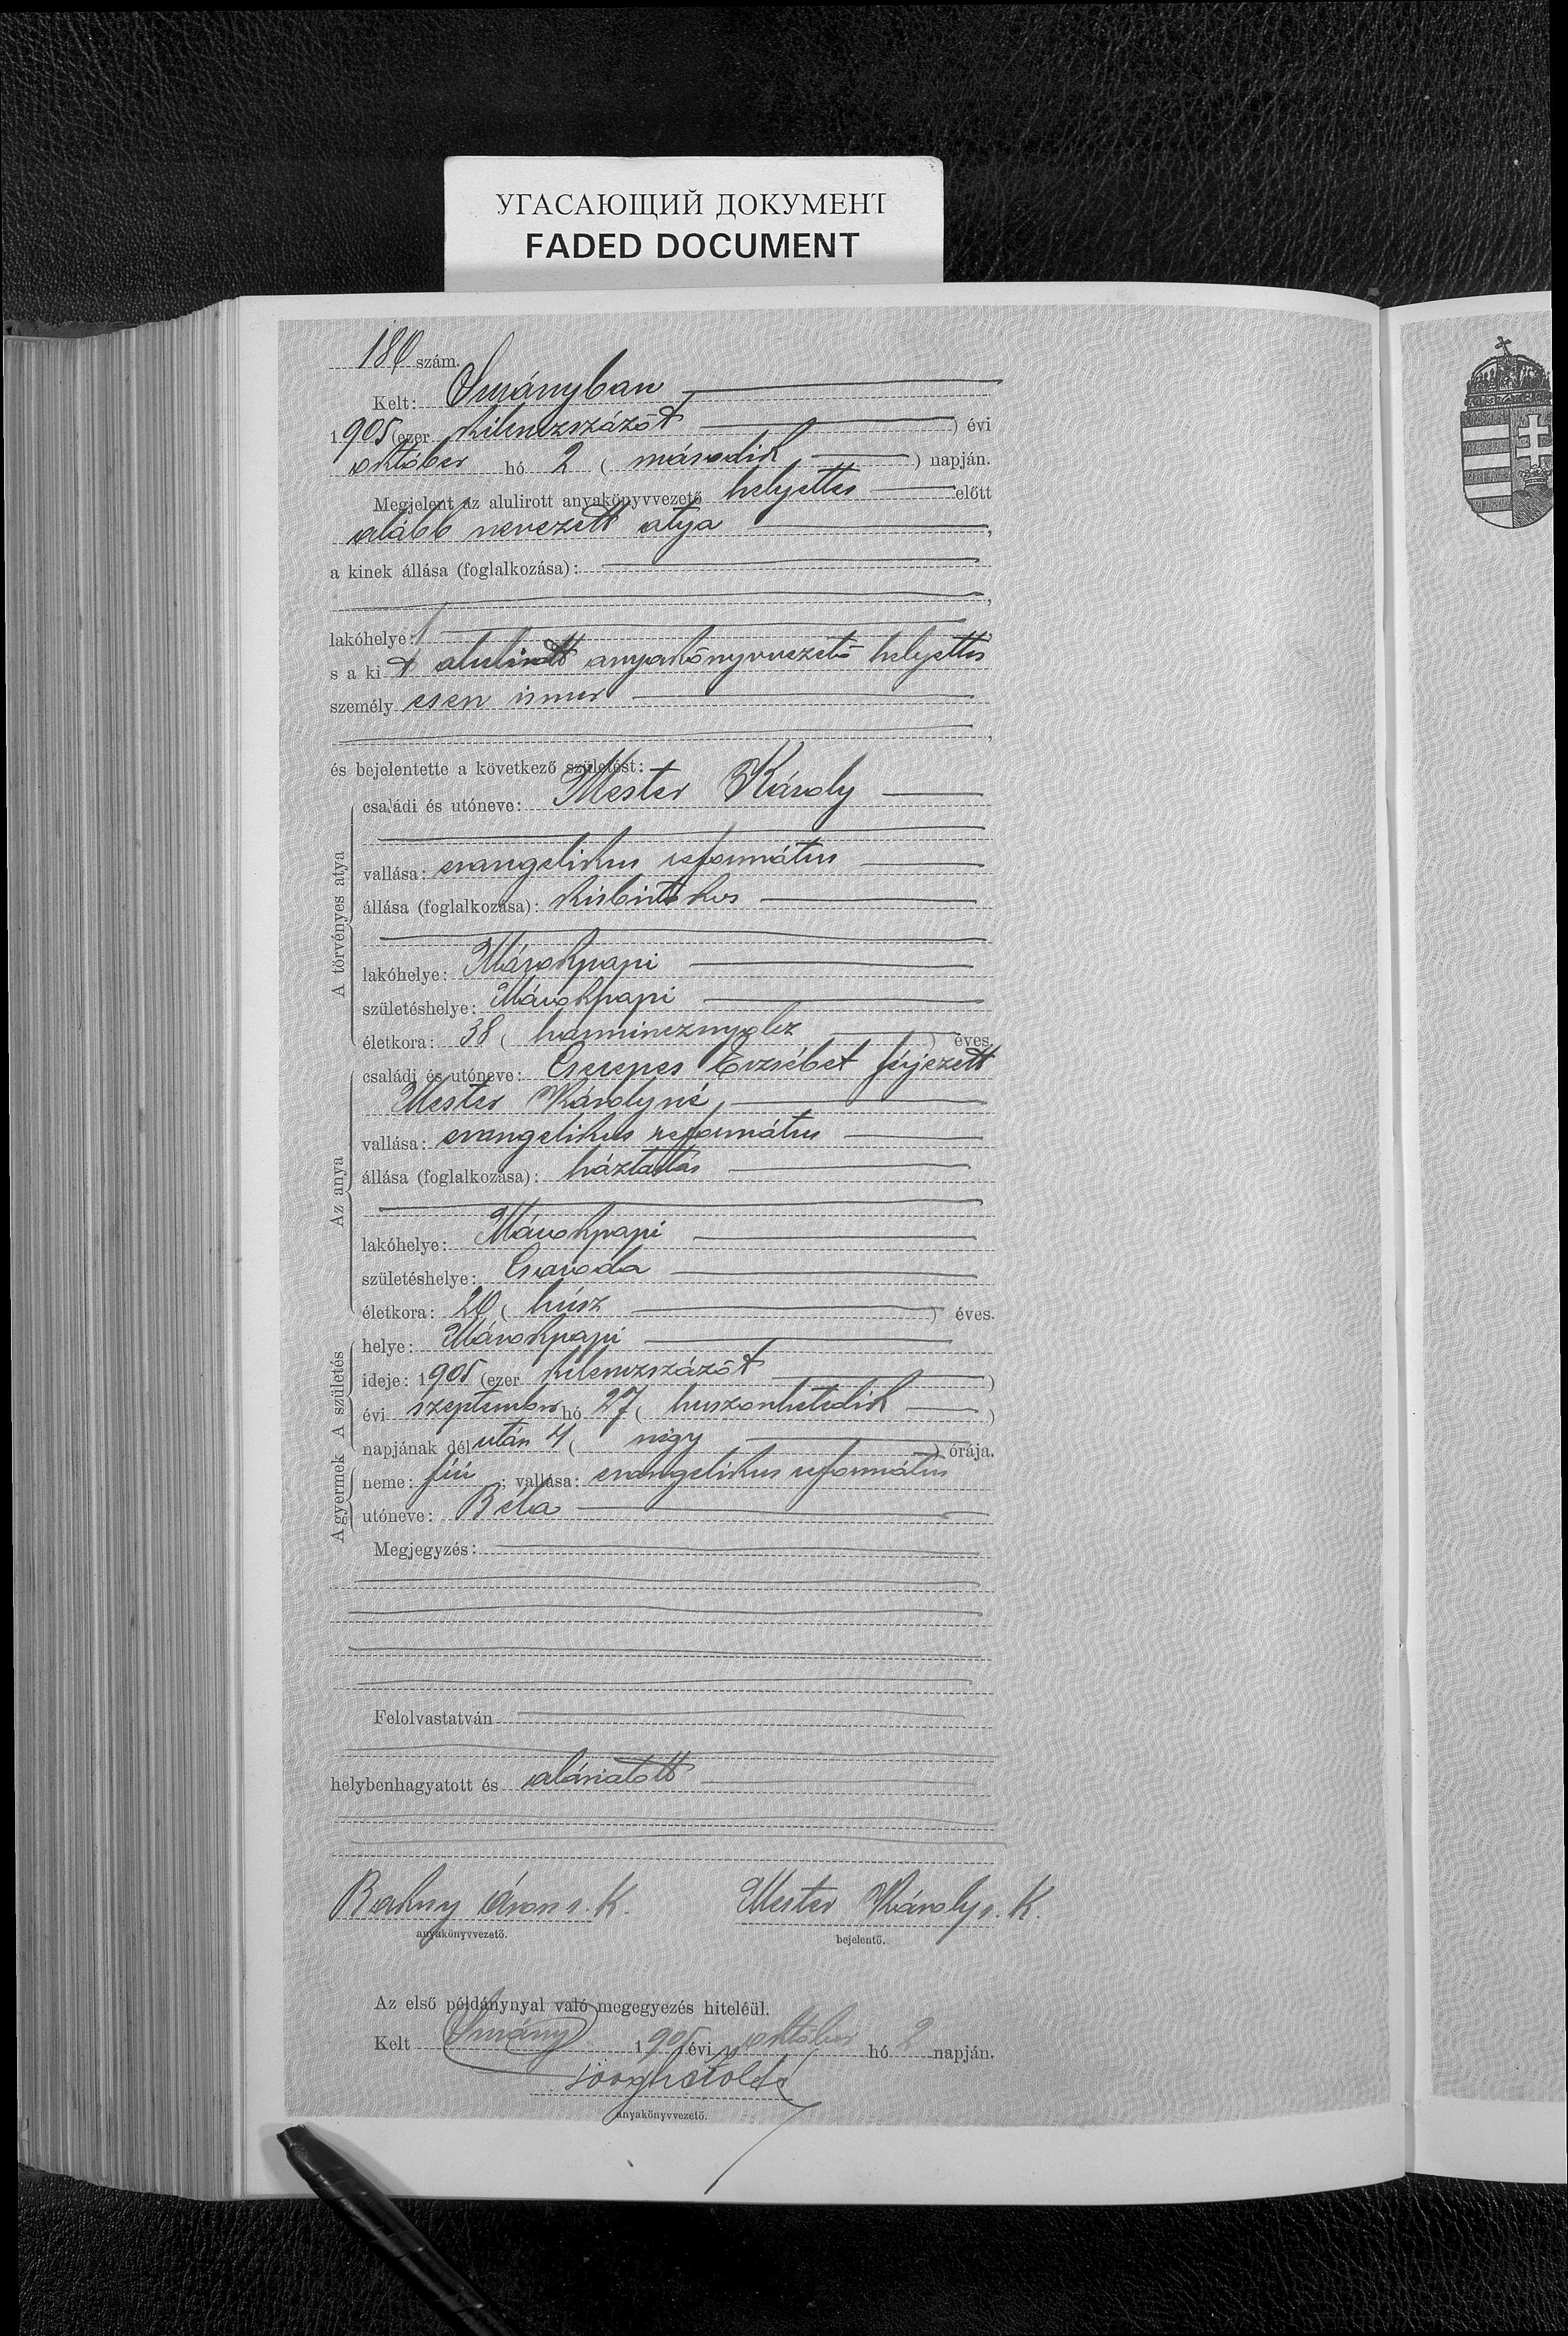 УГАСАЮЩИЙ ДОКУМЕНТ
FADED DOCUMENT
180 szám.
Kelt: Surányban
1905 (ezer kilenczszázöt ) évi
október hó 2 ( második ) napján.
Megjelent az alulirott anyakönyvvezető helyettes előtt
alább nevezett atya ,
a kinek állása (foglalkozása):
,
lakóhelye:
s a kit alulirott anyakönyvvezető helyettes
személy esen ismer
,
és bejelentette a következő születést:
A törvényes atya
családi és utóneve: Mester Károly
vallása: evangelikus református
állása (foglalkozása): kisbirtokos
lakóhelye: Márokpapi
születéshelye: Márokpapi
életkora: 38 ( harmincznyolcz ) éves.
Az anya
családi és utóneve: Cserepes Erzsébet férjezett
Mester Károlyné,
vallása: evangelikus református
állása (foglalkozása): háztartás
lakóhelye: Márokpapi
születéshelye: Csaroda
életkora: 20 ( húsz ) éves.
A születés
helye: Márokpapi
ideje: 1905 (ezer kilenczszázöt )
évi szeptember hó 27 ( huszonhetedik )
napjának dél után 4 ( négy ) órája.
A gyermek
neme: fiú ; vallása: evangelikus református
utóneve: Béla
Megjegyzés:
Felolvastatván
helybenhagyatott és aláiratott
Bakny Áron s. k. Mester Károly s. k.
anyakönyvvezető. bejelentő.
Az első példánynyal való megegyezés hiteléül.
Kelt Surány 1905 évi október hó 2 napján.
anyakönyvvezető.